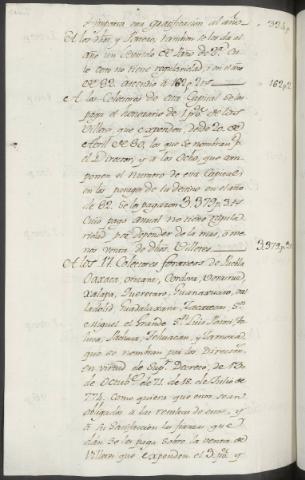 é importa esta gratificacion al año 334p
A los dhos y Portero, tambien se les da al
año un Vestido de Paño de 2ª, en lo
esto no tiene regularidad, en el año
de 82. ascendió á 162p 2rs 162p2
A los Colectores de esta Capital se les
paga el honorario de 1 p%. de los
Villetes, que expenden, desde 20 de
Abril de 80, los que se nombran p.r
el Director, y a los ocho, que com-
ponen el numero de esta Capital
en los pagos de su destino en el año
de 82. se les pagaron 3.379p.3rs
Cuio pago anual no tiene regula-
ridad por depender de la mas, o me-
nos venta de dhos Villetes 3.379p.3
A los 17. Colectores foraneos de Puebla
Oaxaca, Orizava, Cordova, Veracruz,
Xalapa, Queretaro, Guanaxuato, Va-
lladolid, Guadalaxara, Zacatecas, S.n
Miguel el Grande, S.n Luis Potosi, To-
luca, Tehuacan, y
que se nombran por la Direccion,
en virtud de Sup.r Decreto, de 13.
de Octub.e de 71. y de 18. de Julio de
774. como quiera que estos sean
obligados a las remesas de
á su satisfaccion las fianzas, que
dán se les paga sobre la venta de
Villetes que expenden el 3 p%. y